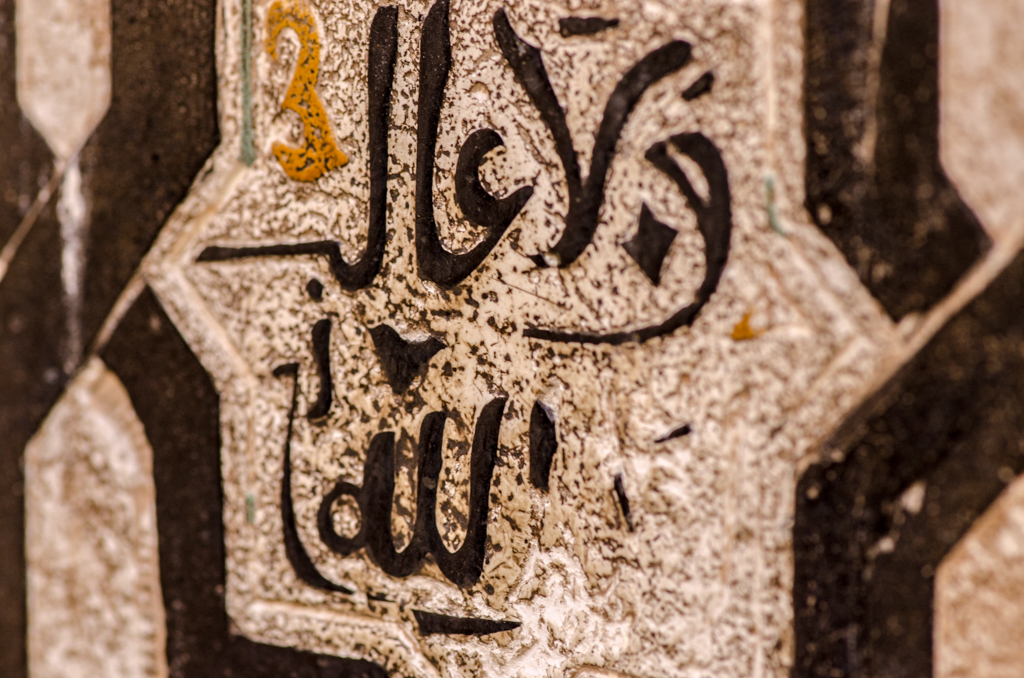 ولا غالب
الا الله